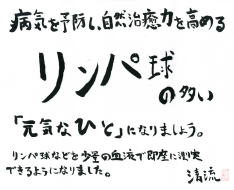 病気を予防し、自然治癒力を高める
リンパ球
の多い
「元気なひと」になりましょう。
リンパ球などを少量の血液で即座に測定
できるようになりました。
清流